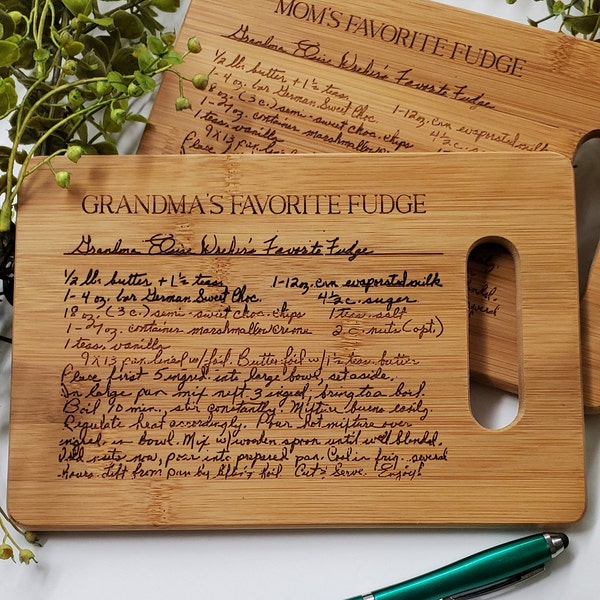 MOM'S FAVORITE FUDGE
Grandma Elsie Favorite Fudge
1/2 lb. butter + 1 1/2 teas.
1-4 oz. bar German Sweet Choc.
1-12 oz. can evaporated milk
18 oz. (3 c.) semi-sweet choc. chips
1-7 oz. container marshmallow
1 teas. vanilla
9x13 pan
Place
GRANDMA'S FAVORITE FUDGE
Grandma Favorite Fudge
1/2 lb. butter + 1 1/2 teas. 1-12 oz. can evaporated milk
1-4 oz. bar German Sweet Choc. 4 1/2 c. sugar
18 oz. (3 c.) semi-sweet choc. chips 1 teas. salt
1-7 oz. container marshmallow creme 2 c. nuts (opt.)
1 teas. vanilla
9x13 pan lined w/foil. Butter foil w/1 1/2 teas. butter
Place first 5 ingred. into large bowl, set aside.
In large pan mix next 3 ingred., bring to a boil.
Boil 10 min., stir constantly. Mixture burns easily.
Regulate heat accordingly. Pour hot mixture over
ingred. in bowl. Mix w/wooden spoon until well blended.
Add nuts now, pour into prepared pan. Cool in frig. several
hours. Lift from pan by lifting foil. Cut & Serve. Enjoy!